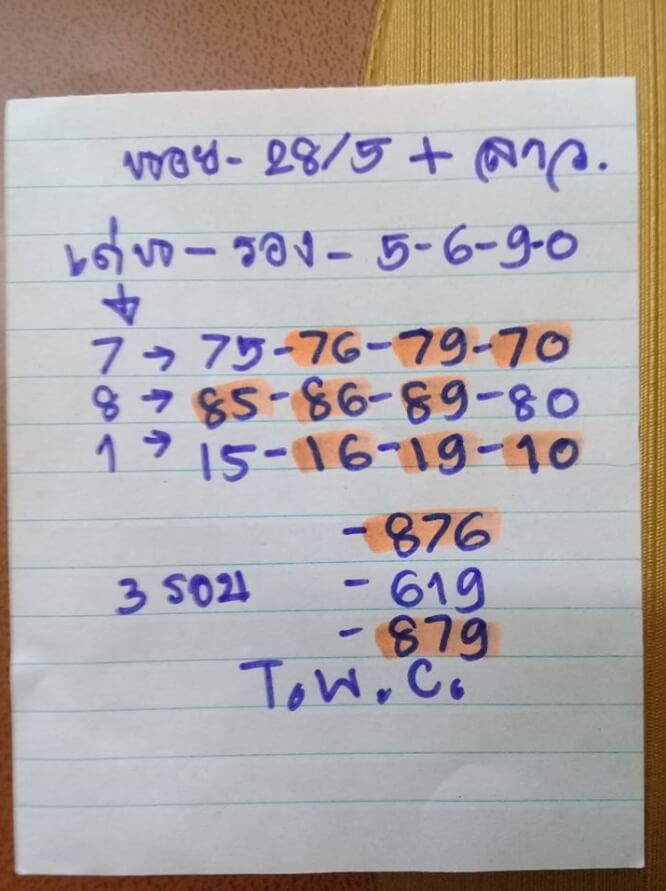 ฮานอย - 28/5 + ลาว.
เด่น - รอง - 5-6-9-0
7 → 75-76-79-70
8 → 85-86-89-80
1 → 15-16-19-10
- 876
3 รอบ - 619
- 879
T.W.C.